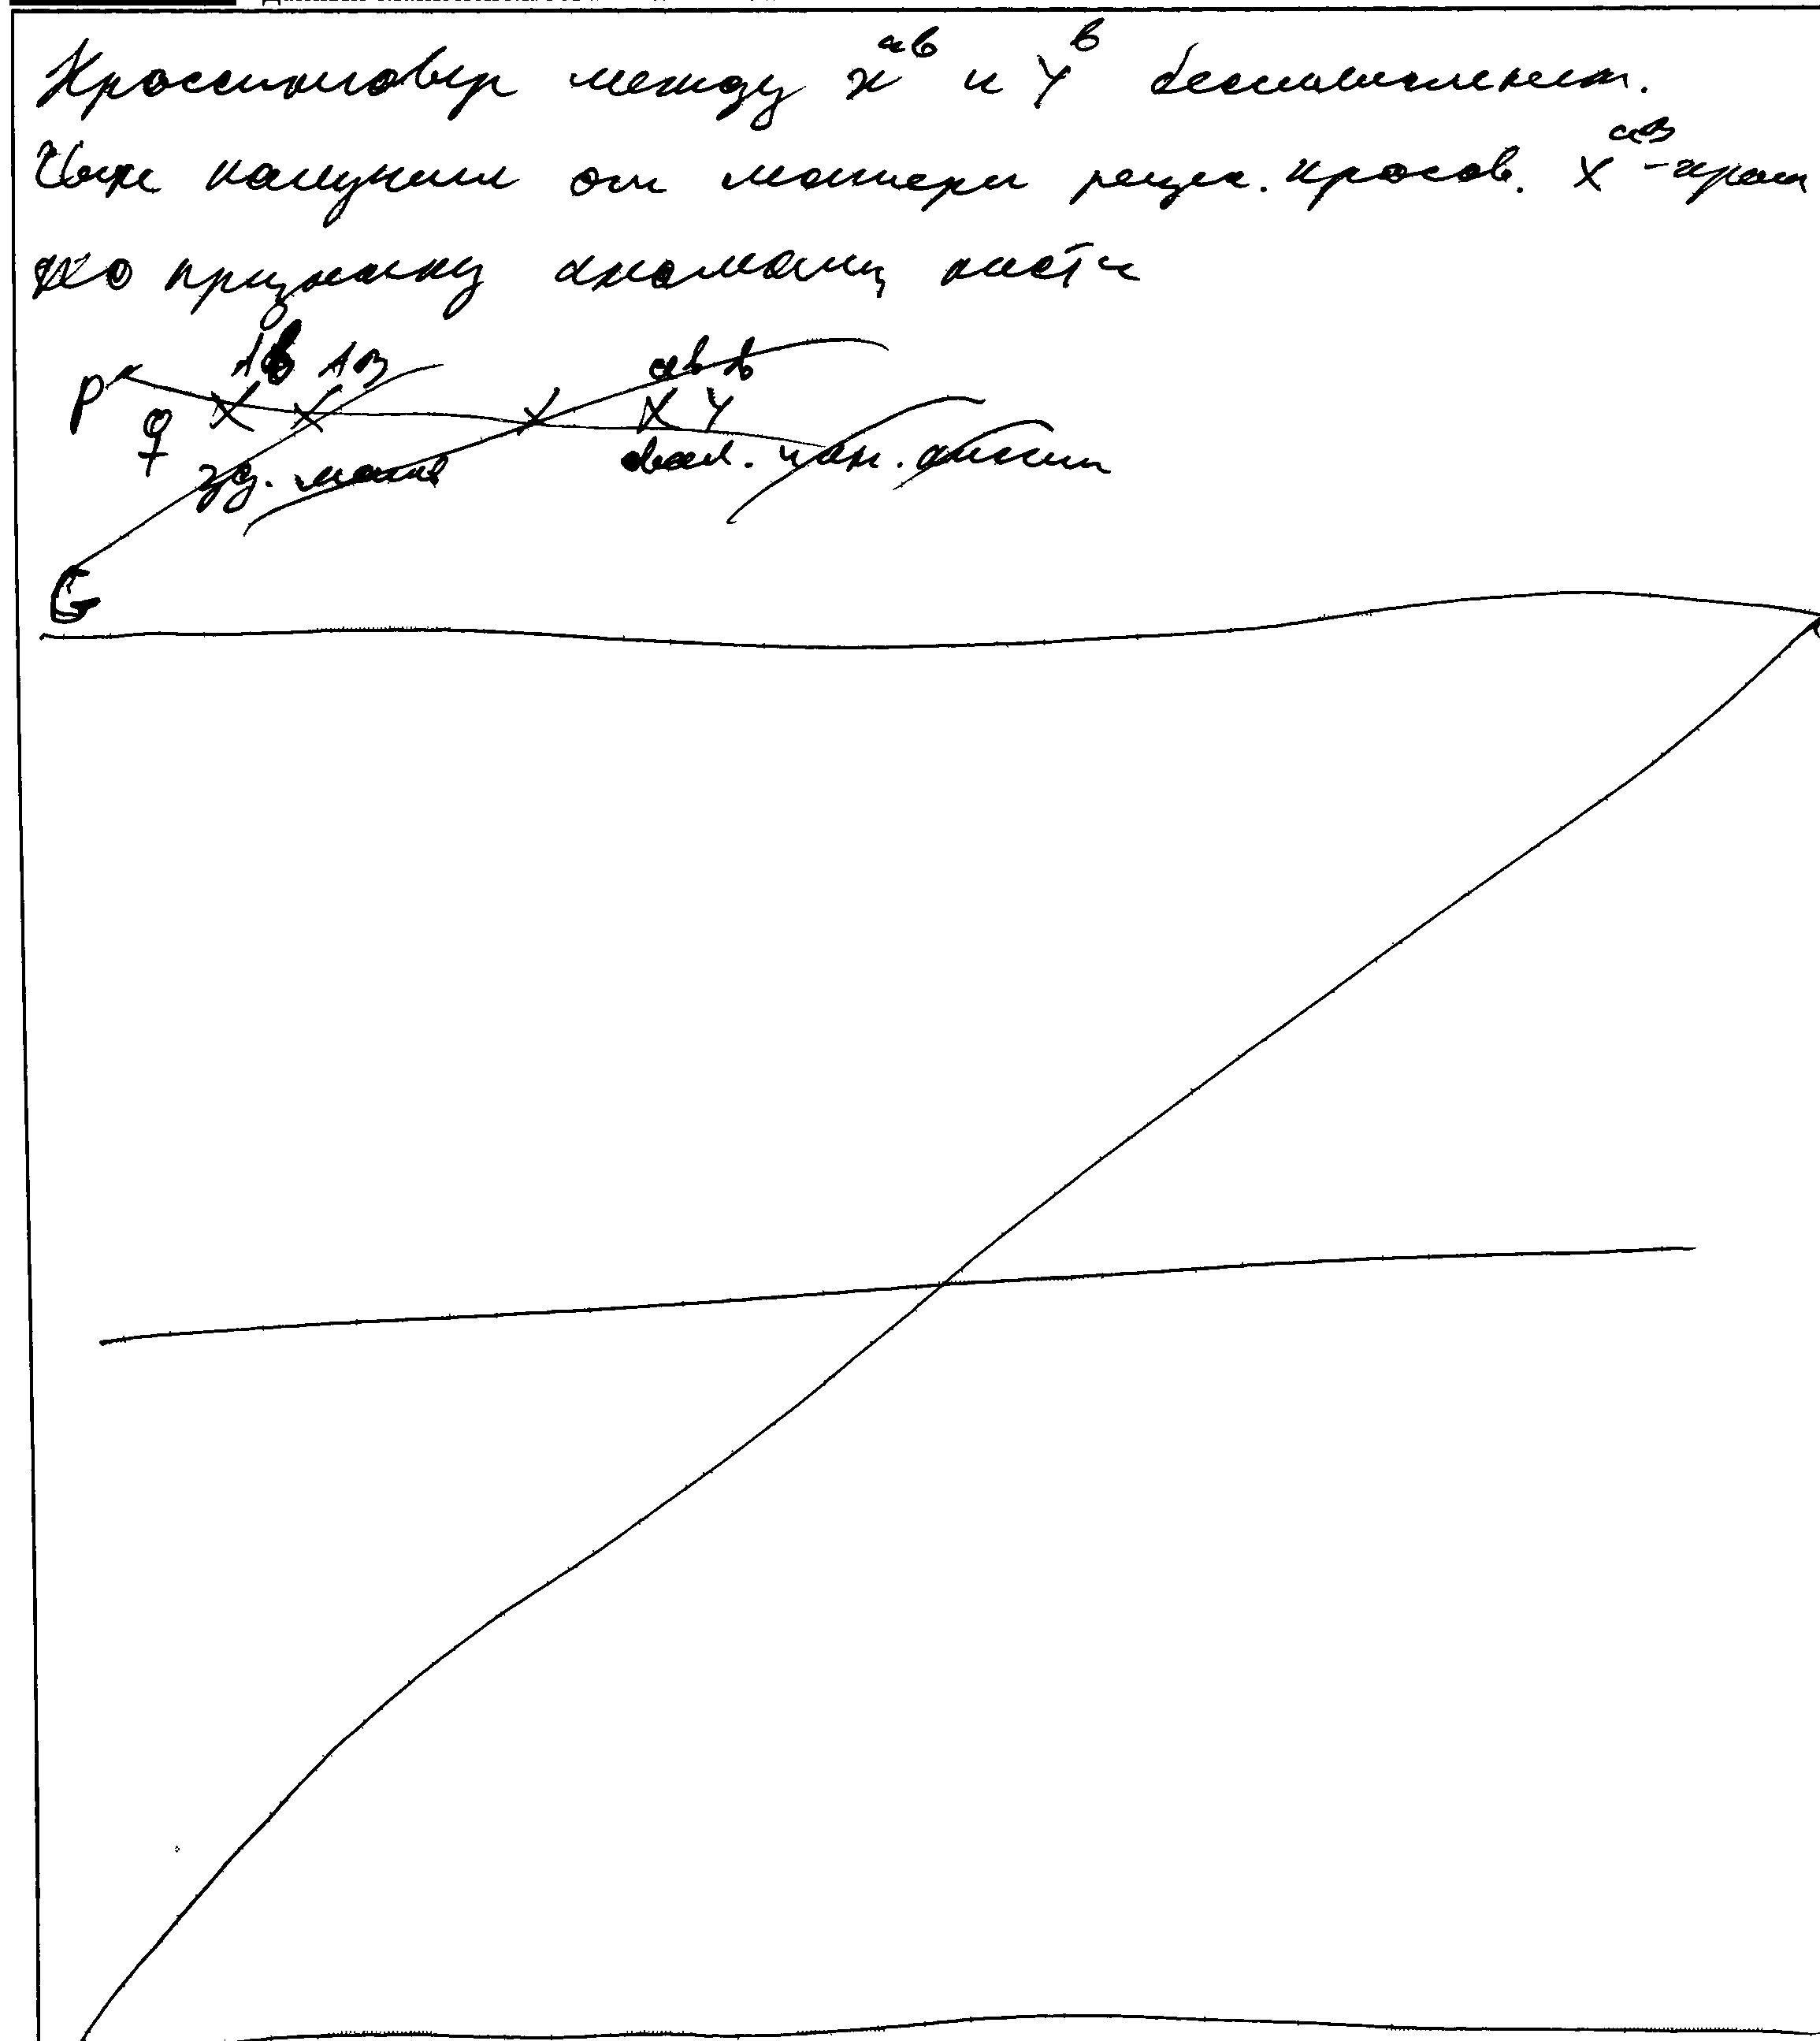 Кроссинговер между x^ab и Y^b бессмысленен.
Сын получил от матери рецес. кросов. X^aB -хром
по признаку аномалии кисти
P ♀ X^Ab X^AB x X^ab Y^b
зд.
G